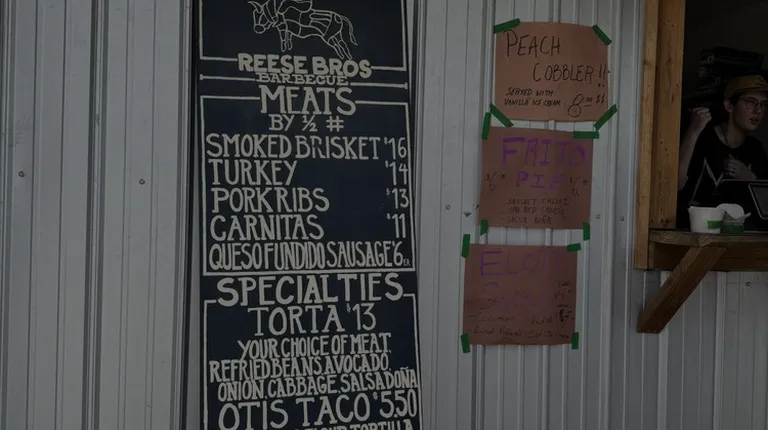 REESE BROS
BARBECUE
MEATS
BY ½ #
SMOKED BRISKET $16
TURKEY $14
PORK RIBS $13
CARNITAS $11
QUESO FUNDIDO SAUSAGE $6 EA
SPECIALTIES
TORTA $13
YOUR CHOICE OF MEAT,
REFRIED BEANS, AVOCADO,
ONION, CABBAGE, SALSA DOÑA
OTIS TACO $5.50
FLOUR TORTILLA
PEACH
COBBLER!!
SERVED WITH
VANILLA ICE CREAM
FRITO
PIE